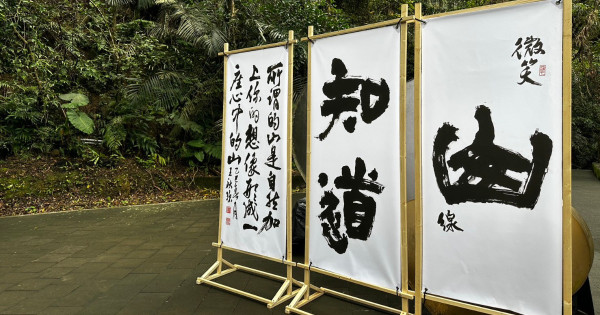 微笑
山
線
知道
所謂的山是自然加
上你的想像形成一
座心中的山